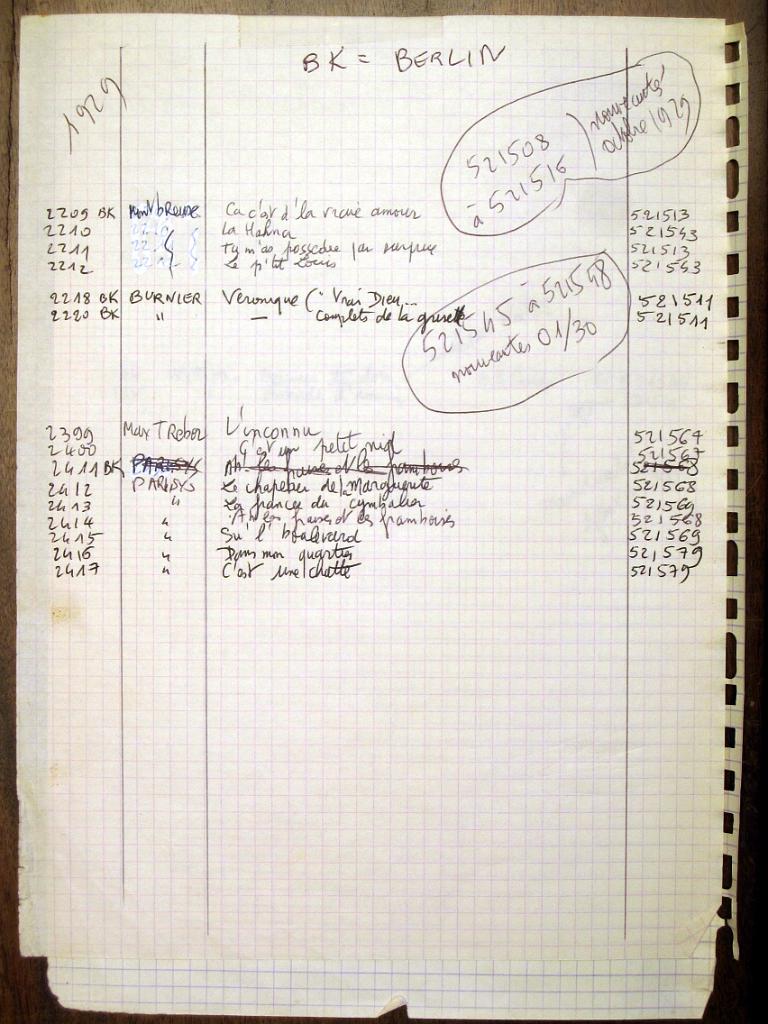 BK = BERLIN
1929
521508
à 521516
nouveautés
octobre 1929
2209 BK Ca c'est d'la vraie amour 521513
2210 La Hahna 521543
2211 Tu m'as possédée par surprise 521513
2212 Le p'tit Louis 521543
2218 BK BURNIER Veronique (" Vrai Dieu... 521511
2220 BK " — Complets de la grisette 521511
521545 à 521548
nouveautés 01/30
2399 Max TRebor L'inconnu 521567
2400 C'est un petit nid 521567
2411 BK PARISYS Ah les fraises et les framboises 521568
2412 PARISYS Le chapelier de Marguerite 521568
2413 " du cymbalier 521569
2414 " Ah les fraises et les framboises 521568
2415 " Su' l' boulevard 521569
2416 " Dans mon quartier 521579
2417 " C'est une chatte 521579